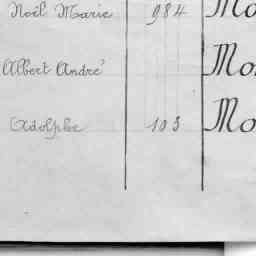 Noël Marie 984 Mo
Albert André Mo
Adolphe 103 Mo